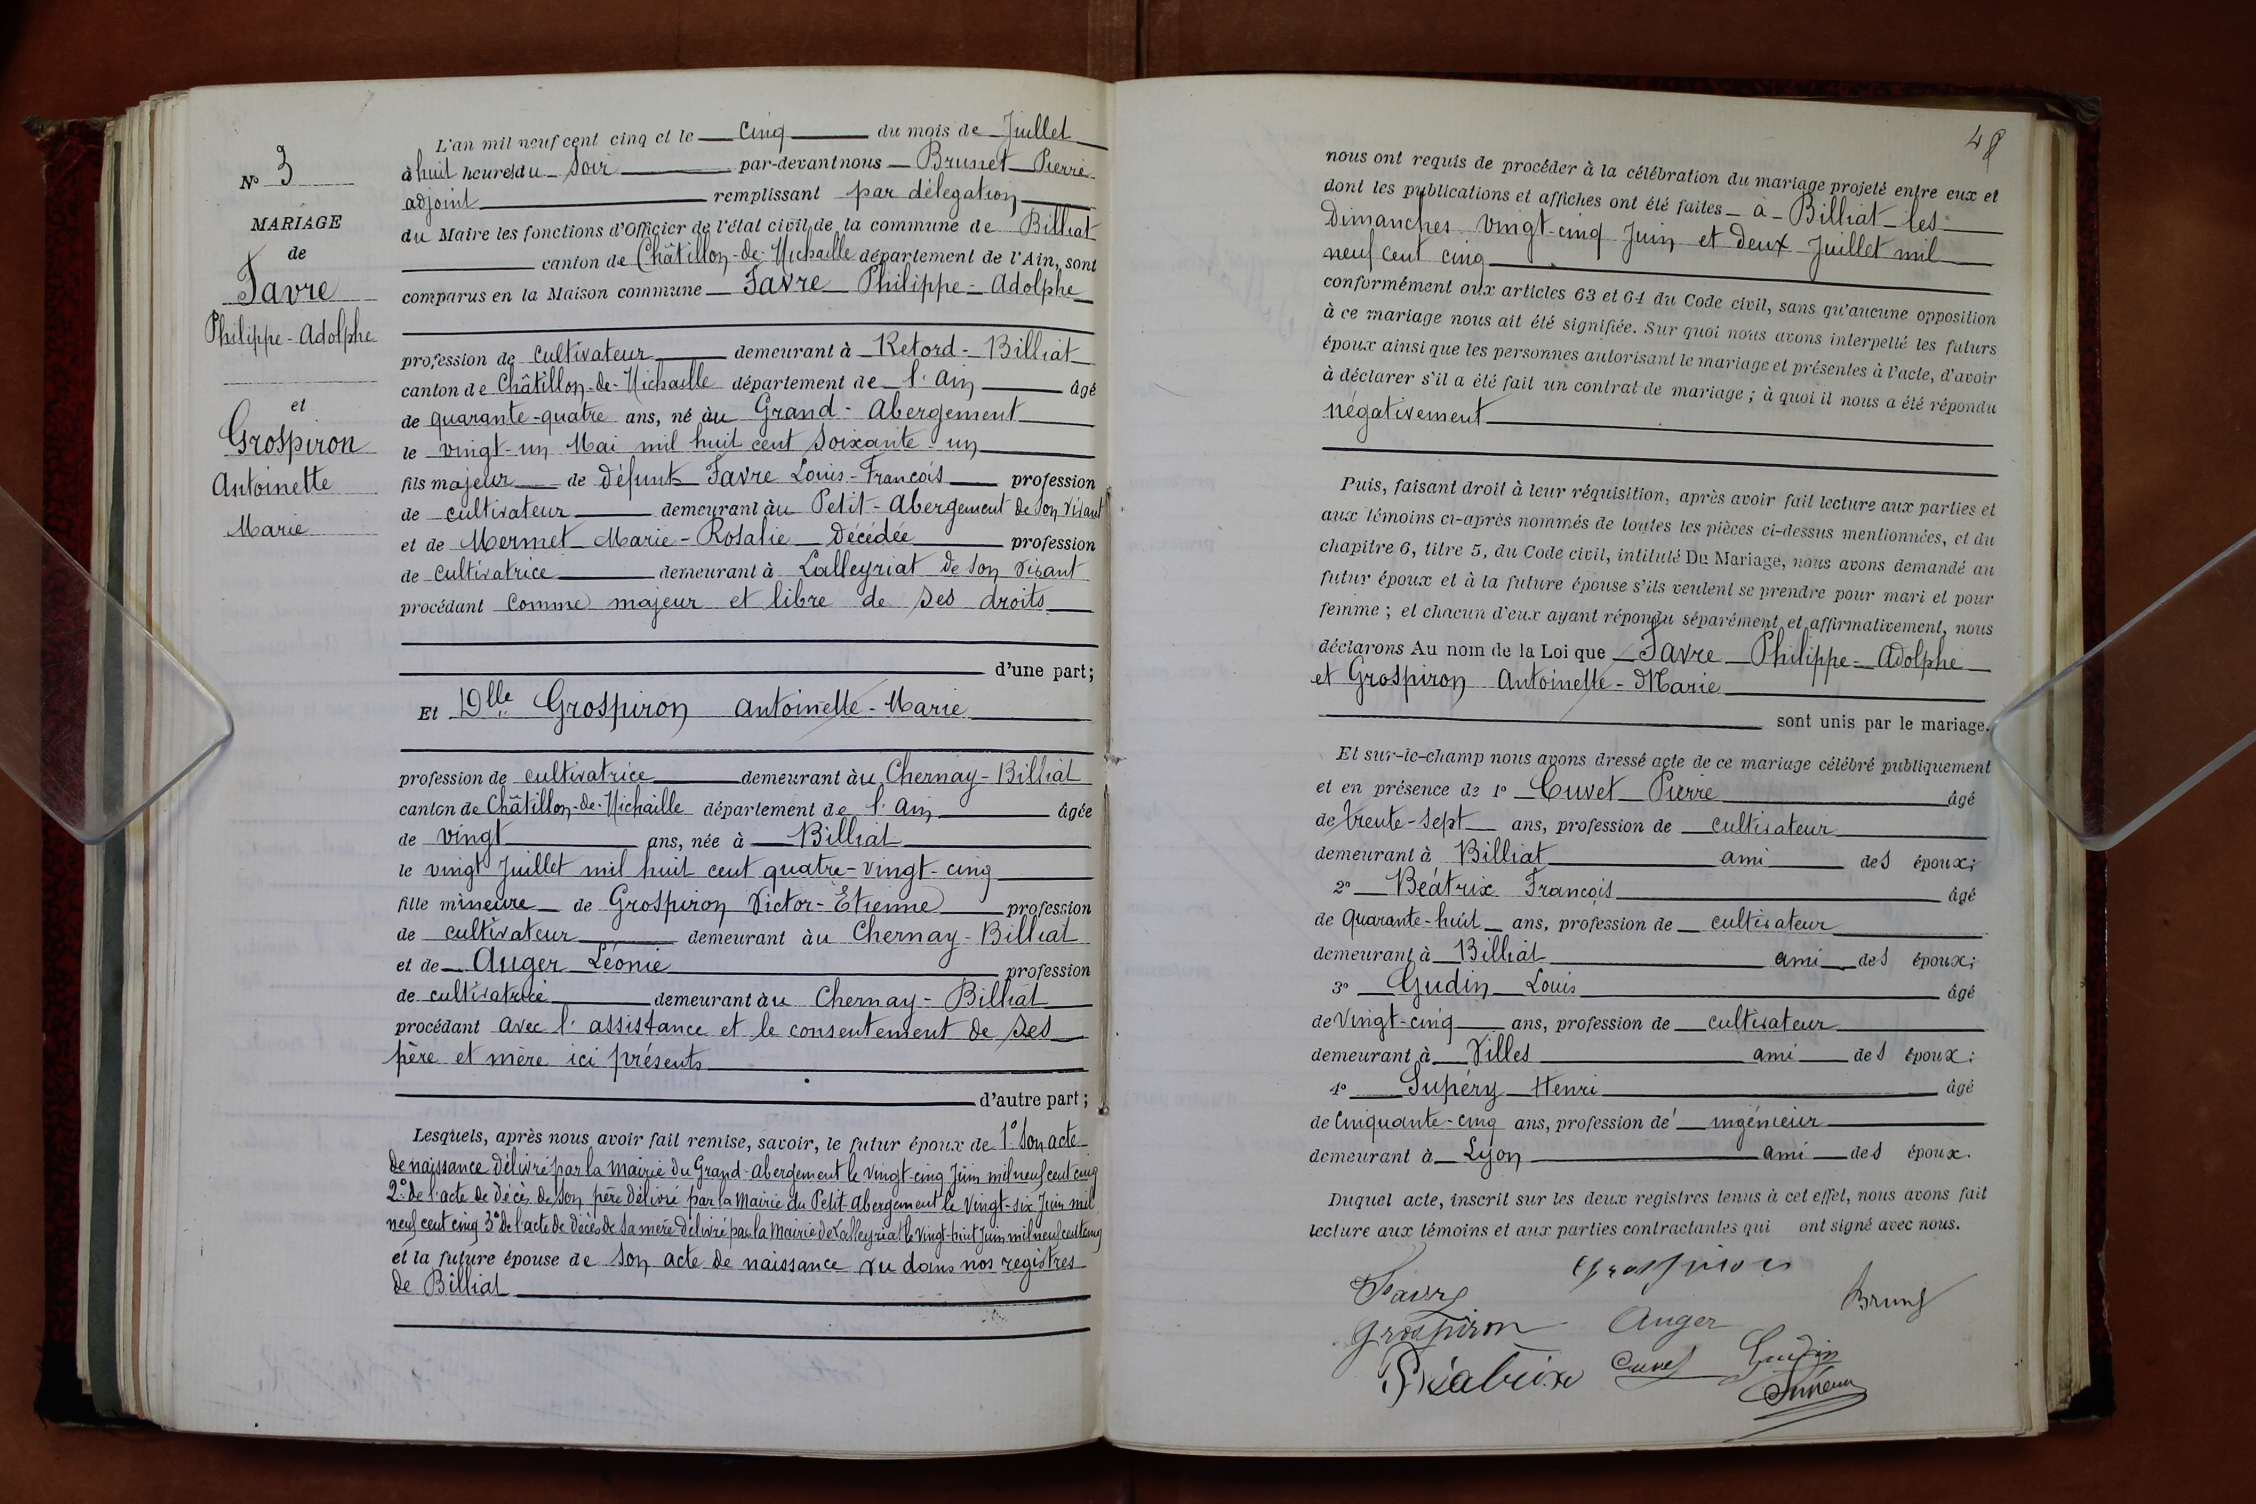 N° 3
MARIAGE
de
Favre
Philippe-Adolphe
et
Grospiron
Antoinette
Marie
L'an mil neuf cent cinq et le cinq du mois de Juillet
à huit heures du soir par-devant nous Brunet Pierre
adjoint remplissant par délégation
du Maire les fonctions d'Officier de l'état civil de la commune de Billiat
canton de Châtillon-de-Michaille département de l'Ain, sont
comparus en la Maison commune Favre Philippe-Adolphe
profession de cultivateur demeurant à Retord-Billiat
canton de Châtillon-de-Michaille département de l'Ain âgé
de quarante-quatre ans, né au Grand-Abergement
le vingt-un Mai mil huit cent soixante-un
fils majeur de défunt Favre Louis-François profession
de cultivateur demeurant au Petit-Abergement de son vivant
et de Mermet Marie-Rosalie Décédée profession
de cultivatrice demeurant à Lalleyriat de son vivant
procédant comme majeur et libre de ses droits
d'une part;
Et Dlle Grospiron Antoinette-Marie
profession de cultivatrice demeurant au Chernay-Billiat
canton de Châtillon-de-Michaille département de l'Ain âgée
de vingt ans, née à Billiat
le vingt Juillet mil huit cent quatre-vingt-cinq
fille mineure de Grospiron Victor-Etienne profession
de cultivateur demeurant au Chernay-Billiat
et de Auger Léonie profession
de cultivatrice demeurant au Chernay-Billiat
procédant avec l'assistance et le consentement de ses
père et mère ici présents
d'autre part;
Lesquels, après nous avoir fait remise, savoir, le futur époux de 1° son acte
de naissance délivré par la mairie du Grand-Abergement le vingt-cinq Juin mil neuf cent cinq
2° de l'acte de décès de son père délivré par la Mairie du Petit-Abergement le vingt-six Juin mil
neuf cent cinq 3° de l'acte de décès de sa mère délivré par la Mairie de Lalleyriat le vingt-huit Juin mil neuf cent cinq
et la future épouse de son acte de naissance vu dans nos registres
de Billiat
48
nous ont requis de procéder à la célébration du mariage projeté entre eux et
dont les publications et affiches ont été faites à Billiat les
Dimanches vingt-cinq Juin et deux Juillet mil
neuf cent cinq
conformément aux articles 63 et 64 du Code civil, sans qu'aucune opposition
à ce mariage nous ait été signifiée. Sur quoi nous avons interpellé les futurs
époux ainsi que les personnes autorisant le mariage et présentes à l'acte, d'avoir
à déclarer s'il a été fait un contrat de mariage; à quoi il nous a été répondu
négativement
Puis, faisant droit à leur réquisition, après avoir fait lecture aux parties et
aux témoins ci-après nommés de toutes les pièces ci-dessus mentionnées, et du
chapitre 6, titre 5, du Code civil, intitulé Du Mariage, nous avons demandé au
futur époux et à la future épouse s'ils veulent se prendre pour mari et pour
femme; et chacun d'eux ayant répondu séparément et affirmativement, nous
déclarons Au nom de la Loi que Favre Philippe-Adolphe
et Grospiron Antoinette-Marie
sont unis par le mariage.
Et sur-le-champ nous avons dressé acte de ce mariage célébré publiquement
et en présence de 1° Cuvet Pierre âgé
de trente-sept ans, profession de cultivateur
demeurant à Billiat ami des époux;
2° Béatrix François âgé
de quarante-huit ans, profession de cultivateur
demeurant à Billiat ami des époux;
3° Gudin Louis âgé
de vingt-cinq ans, profession de cultivateur
demeurant à Villes ami des époux;
4° Supéry Henri âgé
de Cinquante-cinq ans, profession de ingénieur
demeurant à Lyon ami des époux.
Duquel acte, inscrit sur les deux registres tenus à cet effet, nous avons fait
lecture aux témoins et aux parties contractantes qui ont signé avec nous.
Favre Grospiron
Grospiron Auger
Béatrix Cuvet Gudin